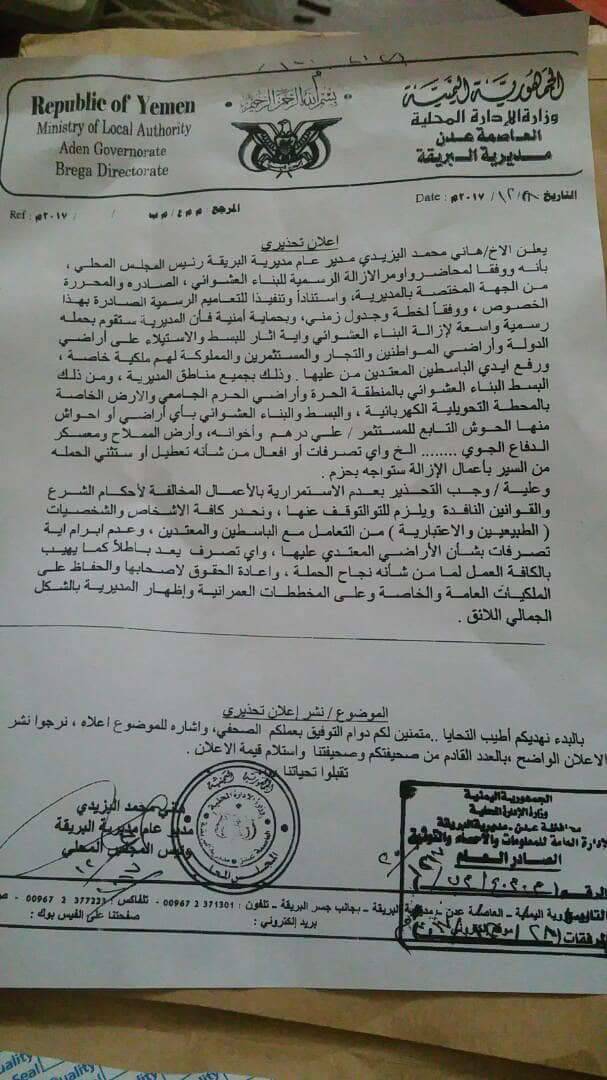 بسم الله الرحمن الرحيم
الجمهورية اليمنية
وزارة الإدارة المحلية
العاصمة عدن
مديرية البريقة
Republic of Yemen
Ministry of Local Authority
Aden Governorate
Brega Directorate
التاريخ ٢٨/١٢/٢٠١٧م : Date
المرجع م م ع / م ب / / ٢٠١٧م : Ref
إعلان تحذيري
يعلن الاخ/هاني محمد اليزيدي مدير عام مديرية البريقة رئيس المجلس المحلي ،
بأنه ووفقا لمحاضر واومر الازالة الرسمية للبناء العشوائي ، الصادره والمحررة
من الجهة المختصة بالمديرية، واستناداً وتنفيذا للتعاميم الرسمية الصادرة بهذا
الخصوص ، ووفقاً لخطة وجدول زمني، وبحماية أمنية فأن المديرية ستقوم بحمله
رسمية واسعة لإزالة البناء العشوائي واية اثار للبسط والاستيلاء على أراضي
الدولة وأراضي المواطنين والتجار والمستثمرين والمملوكة لهم ملكية خاصة ،
ورفع ايدي الباسطين المعتدين من عليها . وذلك بجميع مناطق المديرية ، ومن ذلك
البسط البناء العشوائي بالمنطقة الحرة وأراضي الحرم الجامعي والارض الخاصة
بالمحطة التحويلية الكهربائية ، والبسط والبناء العشوائي بأي أراضي أو احواش
منها الحوش التابع للمستثمر / علي درهم وأخوانه، وأرض الملاح ومعسكر
الدفاع الجوي ........ الخ واي تصرفات او افعال من شأنه تعطيل او ستثني الحمله
من السير بأعمال الإزالة ستواجه بحزم .
وعلية / وجب التحذير بعدم الاستمرارية بالأعمال المخالفة لأحكام الشرع
والقوانين النافدة ويلزم للتوالتوقف عنها ، ونحدر كافة الاشخاص والشخصيات
( الطبيعيين والاعتبارية ) من التعامل مع الباسطين والمعتدين ، وعدم ابرام اية
تصرفات بشأن الأراضي المعتدي عليها ، واي تصرف يعد باطلاً كما يهيب
بالكافة العمل لما من شأنه نجاح الحملة ، واعادة الحقوق لاصحابها والحفاظ على
الملكيات العامة والخاصة وعلى المخططات العمرانية وإظهار المديرية بالشكل
الجمالي اللائق .
الموضوع / نشر إعلان تحذيري
بالبدء نهديكم أطيب التحايا ..متمنين لكم دوام التوفيق بعملكم الصحفي، واشاره للموضوع اعلاه ، نرجوا نشر
الاعلان الواضح ،بالعدد القادم من صحيفتكم وصحيفتنا واستلام قيمة الاعلان .
تقبلوا تحياتنا
هاني محمد اليزيدي
مدير عام مديرية البريقة
ورئيس المجلس المحلي
الجمهورية اليمنية
وزارة الإدارة المحلية
محافظة عدن - مديرية البريقة
الإدارة العامة للمعلومات والاحصاء والتوثيق
الصادر العام
الرقم
التاريخ
المرفقات
الجمهورية اليمنية – العاصمة عدن – مديرية البريقة – بجانب جسر البريقة – تلفون : 371301 2 00967 - تلفاكس : 377221 2 00967
بريد إلكتروني : صفحتنا على الفيس بوك :